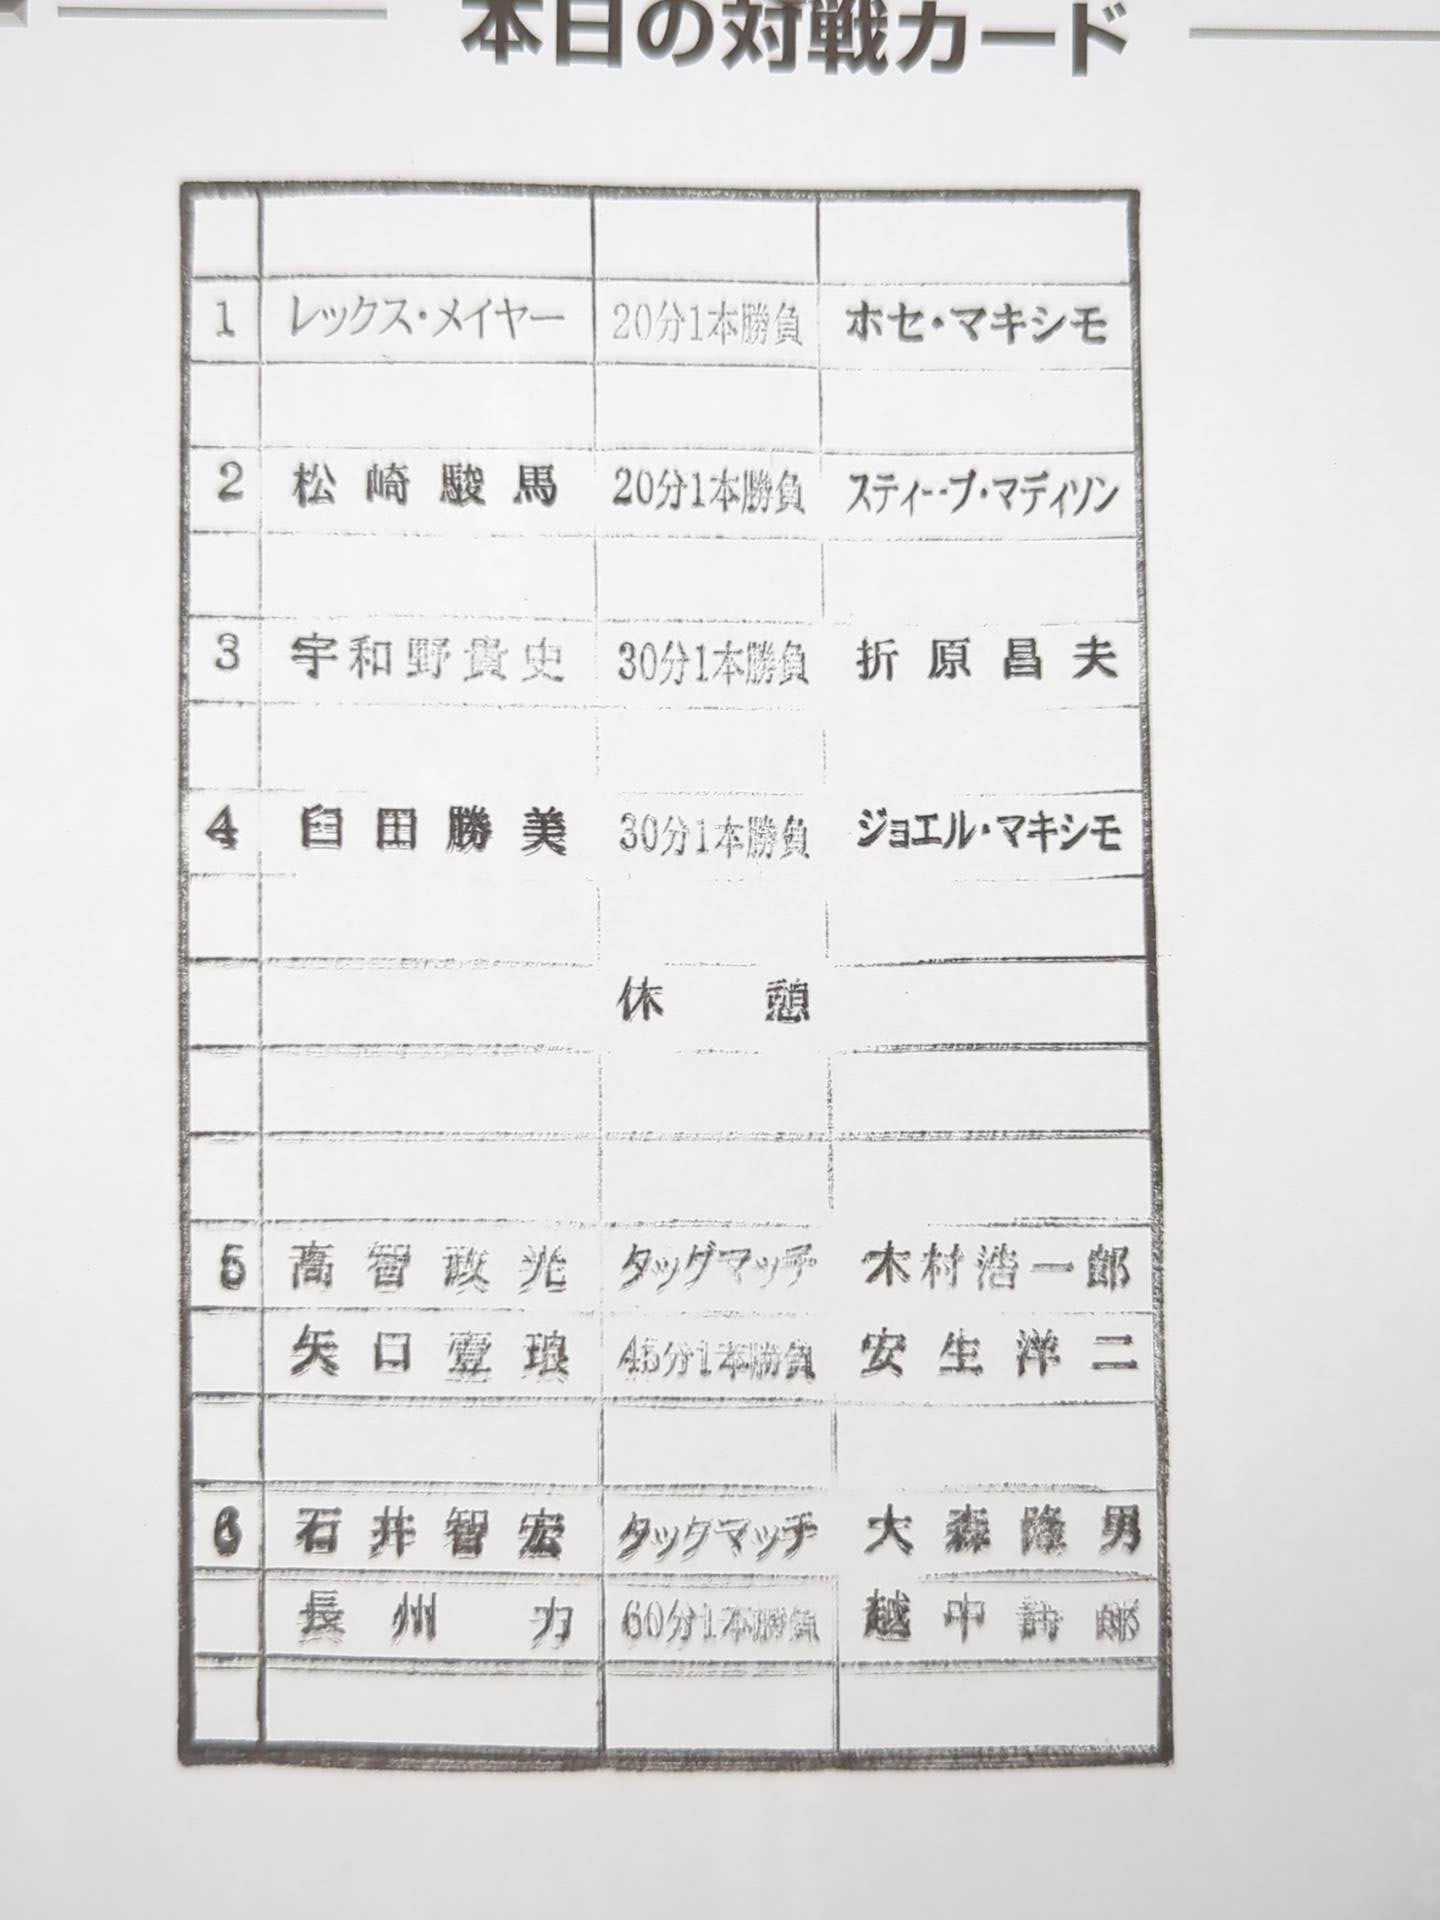 本日の対戦カード
1 レックス・メイヤー 20分1本勝負 ホセ・マキシモ
2 松崎駿馬 20分1本勝負 スティーブ・マディソン
3 宇和野貴史 30分1本勝負 折原昌夫
4 臼田勝美 30分1本勝負 ジョエル・マキシモ
休憩
5 高智政光 タッグマッチ 木村浩一郎
矢口壹琅 45分1本勝負 安生洋二
6 石井智宏 タッグマッチ 大森隆男
長州力 60分1本勝負 越中詩郎